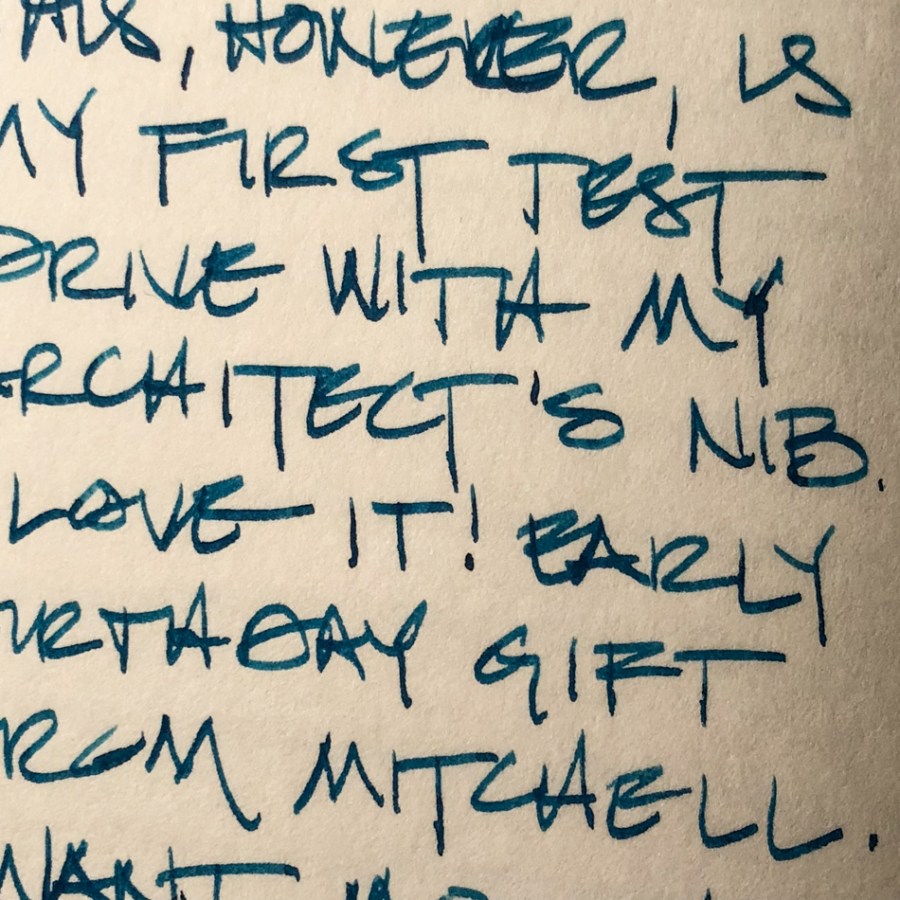 THIS, HOWEVER, IS
MY FIRST TEST
DRIVE WITH MY
ARCHITECT'S NIB.
LOVE IT! EARLY
BIRTHDAY GIFT
FROM MITCHELL.
WANT